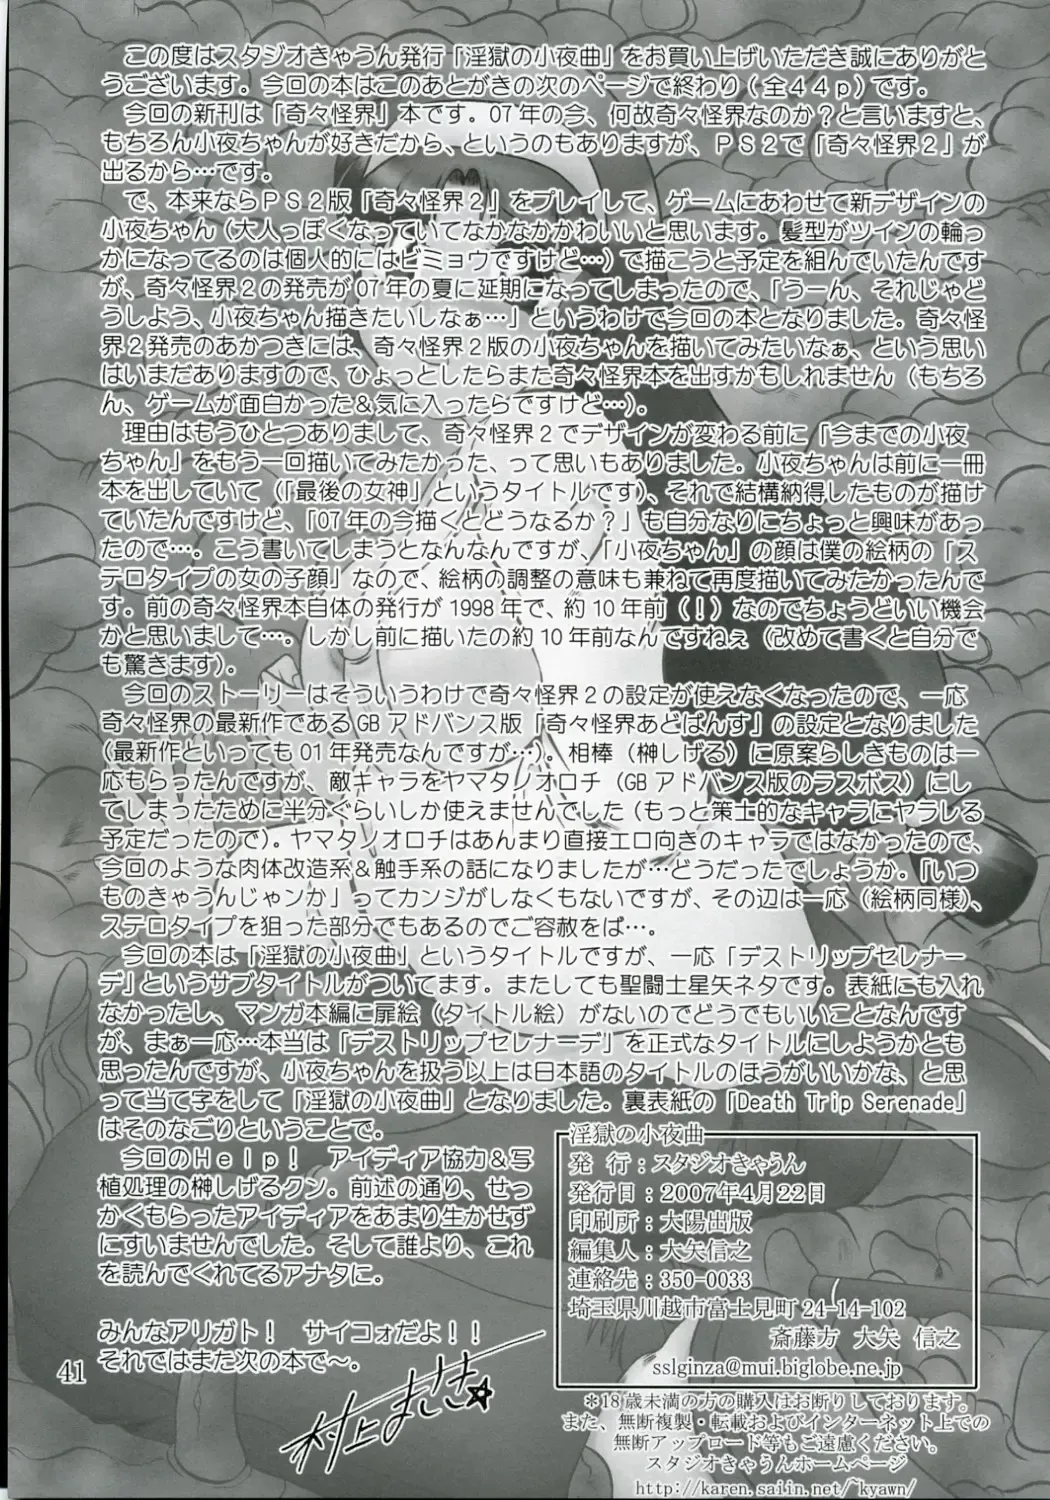 この度はスタジオきゃうん発行「淫獄の小夜曲」をお買い上げいただき誠にありがと
うございます。今回の本はこのあとがきの次のページで終わり（全４４ｐ）です。
今回の新刊は「奇々怪界」本です。07年の今、何故奇々怪界なのか？と言いますと、
もちろん小夜ちゃんが好きだから、というのもありますが、ＰＳ２で「奇々怪界２」が
出るから…です。
で、本来ならＰＳ２版「奇々怪界２」をプレイして、ゲームにあわせて新デザインの
小夜ちゃん（大人っぽくなっていてなかなかかわいいと思います。髪型がツインの輪っ
かになってるのは個人的にはビミョウですけど…）で描こうと予定を組んでいたんです
が、奇々怪界２の発売が07年の夏に延期になってしまったので、「うーん、それじゃど
うしよう、小夜ちゃん描きたいしなぁ…」というわけで今回の本となりました。奇々怪
界２発売のあかつきには、奇々怪界２版の小夜ちゃんを描いてみたいなぁ、という思い
はいまだありますので、ひょっとしたらまた奇々怪界本を出すかもしれません（もちろ
ん、ゲームが面白かった＆気に入ったらですけど…）。
理由はもうひとつありまして、奇々怪界２でデザインが変わる前に「今までの小夜
ちゃん」をもう一回描いてみたかった、って思いもありました。小夜ちゃんは前に一冊
本を出していて（「最後の女神」というタイトルです）、それで結構納得したものが描け
ていたんですけど、「07年の今描くとどうなるか？」も自分なりにちょっと興味があっ
たので…。こう書いてしまうとなんなんですが、「小夜ちゃん」の顔は僕の絵柄の「ス
テロタイプの女の子顔」なので、絵柄の調整の意味も兼ねて再度描いてみたかったんで
す。前の奇々怪界本自体の発行が1998年で、約10年前（！）なのでちょうどいい機会
かと思いまして…。しかし前に描いたの約10年前なんですねぇ（改めて書くと自分で
も驚きます）。
今回のストーリーはそういうわけで奇々怪界２の設定が使えなくなったので、一応
奇々怪界の最新作であるGBアドバンス版「奇々怪界あどばんす」の設定となりました
（最新作といっても01年発売なんですが…）。相棒（榊しげる）に原案らしきものは一
応もらったんですが、敵キャラをヤマタノオロチ（GBアドバンス版のラスボス）にし
てしまったために半分ぐらいしか使えませんでした（もっと策士的なキャラにヤラしる
予定だったので）。ヤマタノオロチはあんまり直接エロ向きのキャラではなかったので、
今回のような肉体改造系＆触手系の話になりましたが…どうだったでしょうか。「いつ
ものきゃうんじゃンか」ってカンジがしなくもないですが、その辺は一応（絵柄同様）、
ステロタイプを狙った部分でもあるのでご容赦をば…。
今回の本は「淫獄の小夜曲」というタイトルですが、一応「デストリップセレナー
デ」というサブタイトルがついてます。またしても聖闘士星矢ネタです。表紙にも入れ
なかったし、マンガ本編に扉絵（タイトル絵）がないのでどうでもいいことなんです
が、まぁ一応…本当は「デストリップセレナーデ」を正式なタイトルにしようかとも
思ったんですが、小夜ちゃんを扱う以上は日本語のタイトルのほうがいいかな、と思
って当て字をして「淫獄の小夜曲」となりました。裏表紙の「Death Trip Serenade」
はそのなごりということで。
今回のＨｅｌｐ！　アイディア協力＆写
植処理の榊しげるクン。前述の通り、せっ
かくもらったアイディアをあまり生かせず
にすいませんでした。そして誰より、これ
を読んでくれてるアナタに。
みんなアリガト！　サイコォだよ！！
それではまた次の本で～。
村上まさき☆
41
淫獄の小夜曲
発　行：スタジオきゃうん
発行日：2007年4月22日
印刷所：大陽出版
編集人：大矢信之
連絡先：350-0033
埼玉県川越市富士見町24-14-102
斎藤方　大矢　信之
sslginza@mui.biglobe.ne.jp
＊18歳未満の方の購入はお断りしております。
また、無断複製・転載およびインターネット上での
無断アップロード等もご遠慮ください。
スタジオきゃうんホームページ
http://karen.saiin.net/~kyawn/